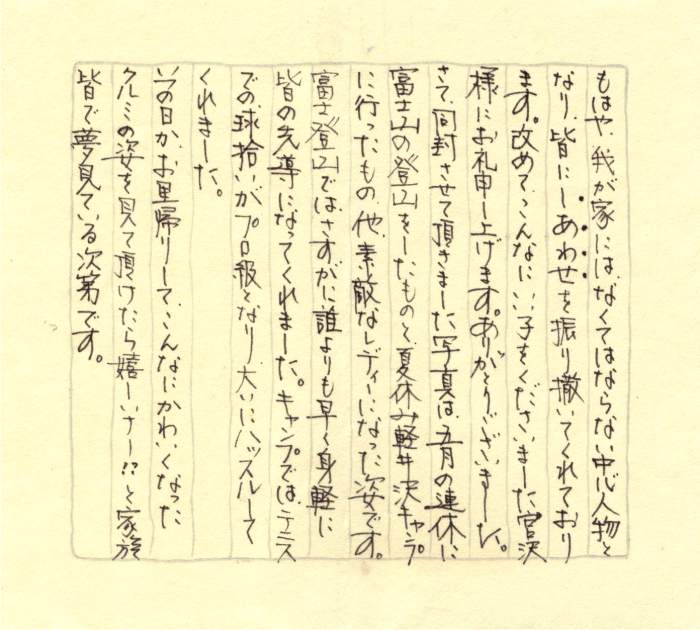 もはや、我が家には、なくてはならない中心人物と
なり、皆にしあわせを振り撒いてくれており
ます。改めて、こんなにいい子をくださいました宮沢
様にお礼申し上げます。ありがとうございました。
さて、同封させて頂きました写真は、五月の連休に
富士山の登山をしたものと、夏休み軽井沢キャンプ
に行ったもの、他、素敵なレディーになった姿です。
富士登山では、さすがに誰よりも早く身軽に
皆の先導になってくれました。キャンプでは、テニス
での球拾いがプロ級となり、大いにハッスルして
くれました。
いつの日か、お里帰りして、こんなにかわいくなった
クルミの姿を見て頂けたら嬉しいナー!?と家族
皆で夢見ている次第です。